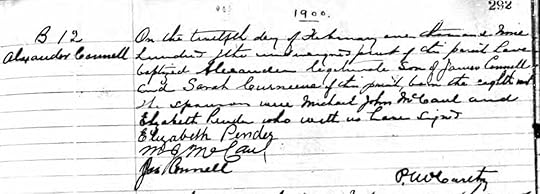 1900.
292
B 12
Alexander Connell
On the twelfth day of February one thousand nine
hundred I the undersigned priest of this parish have
baptized Alexander legitimate Son of James Connell
and Sarah of this parish, born the eighth inst
The sponsors were Michael John McCaul and
Elizabeth Pender who with us have signed
Elizabeth Pender
M J McCaul
Jas Connell
P. McCarthy